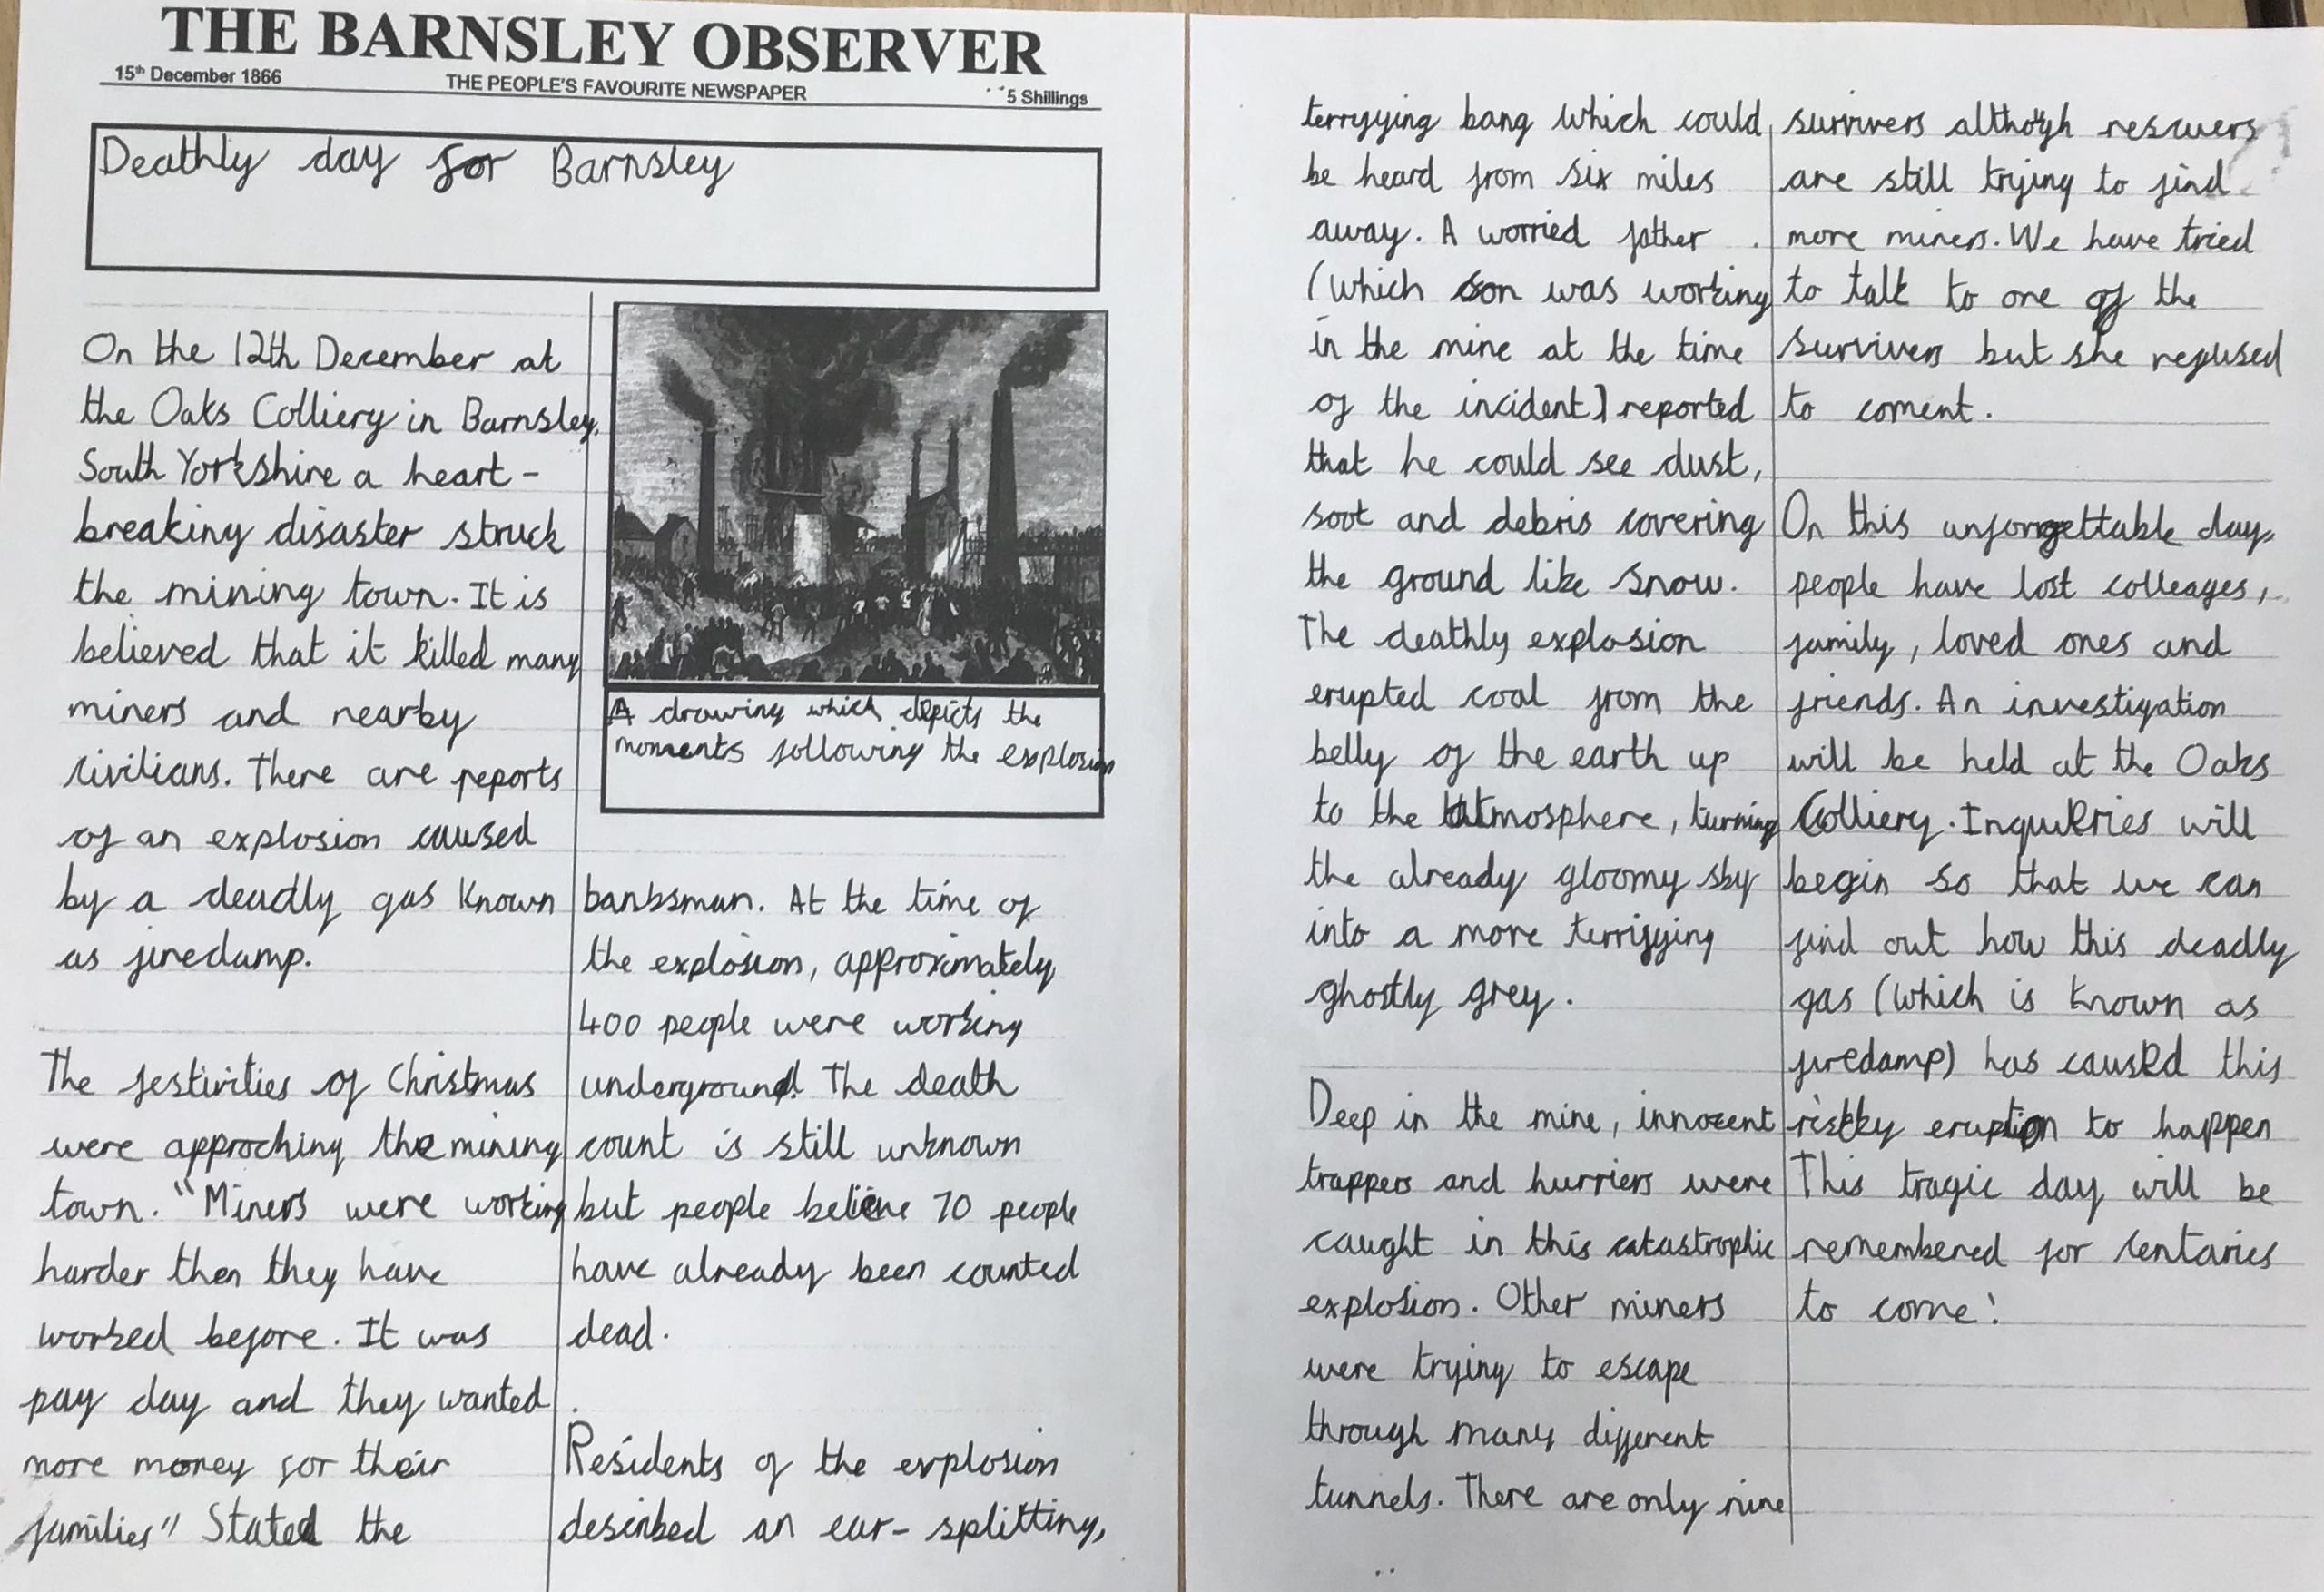 THE BARNSLEY OBSERVER
15th December 1866 THE PEOPLE'S FAVOURITE NEWSPAPER 5 Shillings
Deathly day for Barnsley
On the 12th December at
the Oaks Colliery in Barnsley,
South Yorkshire a heart-
breaking disaster struck
the mining town. It is
believed that it killed many
miners and nearby
civilians. There are reports
of an explosion caused
by a deadly gas known
as firedamp.
The festivities of Christmas
were approching the mining
town. "Miners were working
harder then they have
worked before. It was
pay day and they wanted
more money for their
families" Stated the
A drawing which depicts the
moments following the explosion
banksman. At the time of
the explosion, approximately
400 people were working
underground. The death
count is still unknown
but people believe 70 people
have already been counted
dead.
Residents of the explosion
described an ear-splitting,
terryying bang which could
be heard from six miles
away. A worried father
(which son was working
in the mine at the time
of the incident) reported
that he could see dust,
soot and debris covering
the ground like snow.
The deathly explosion
erupted coal from the
belly of the earth up
to the atmosphere, turning
the already gloomy sky
into a more terrifying
ghostly grey.
Deep in the mine, innocent
trappers and hurriers were
caught in this catastrophic
explosion. Other miners
were trying to escape
through many different
tunnels. There are only nine
survivers although rescuers
are still trying to find
more miners. We have tried
to talk to one of the
survivers but she refused
to coment.
On this unforgettable day,
people have lost colleages,
family, loved ones and
friends. An investigation
will be held at the Oaks
Colliery. Inquiries will
begin so that we can
find out how this deadly
gas (which is known as
firedamp) has caused this
risky eruption to happen
This tragic day will be
remembered for centaries
to come!